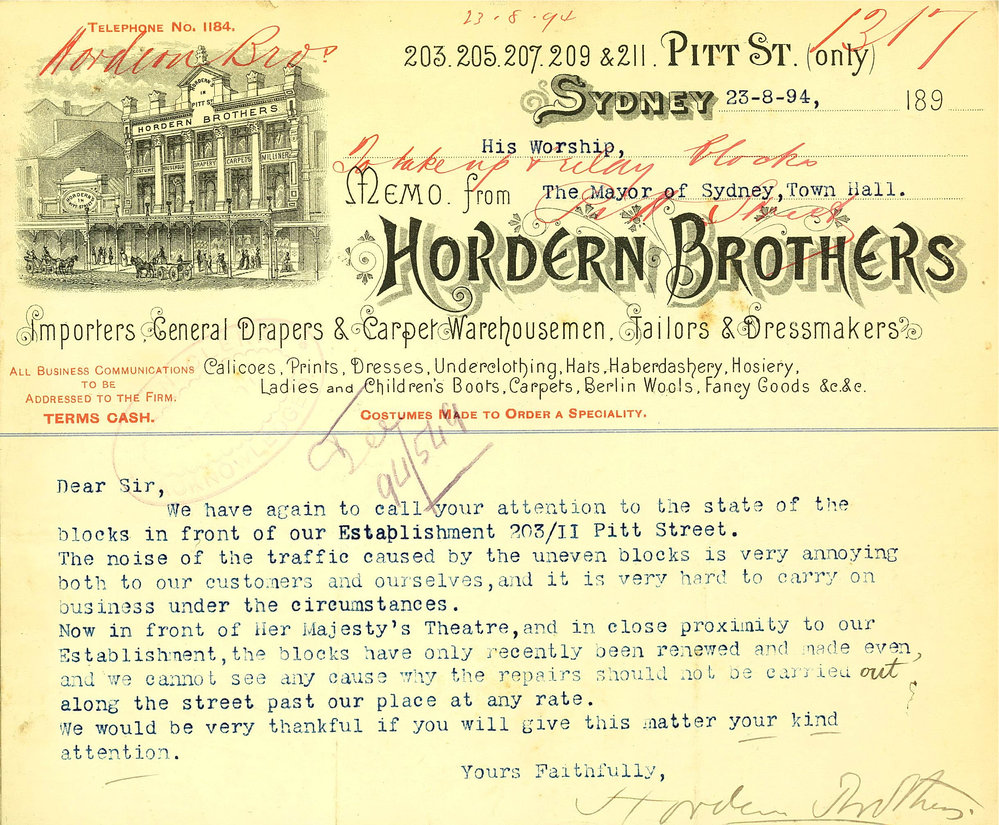 23-8-94
TELEPHONE NO. 1184.
Hordern Bros
1317
203. 205. 207. 209 & 211. PITT ST. (only)
SYDNEY 23-8-94, 189
HORDERN'S
IN
PITT ST
HORDERN BROTHERS
COSTUMES DRAPERY CARPETS MILLINER
HORDERN'S
IN
PITT STREET
His Worship,
To take up & relay blocks
MEMO. from The Mayor of Sydney, Town Hall.
Pitt Street
HORDERN BROTHERS
Importers, General Drapers & Carpet Warehousemen, Tailors & Dressmakers
ALL BUSINESS COMMUNICATIONS
TO BE
ADDRESSED TO THE FIRM.
TERMS CASH.
Calicoes, Prints, Dresses, Underclothing, Hats, Haberdashery, Hosiery,
Ladies and Children's Boots, Carpets, Berlin Wools, Fancy Goods &c.&c.
COSTUMES MADE TO ORDER A SPECIALITY.
94/549
Dear Sir,
We have again to call your attention to the state of the
blocks in front of our Establishment 203/II Pitt Street.
The noise of the traffic caused by the uneven blocks is very annoying
both to our customers and ourselves,and it is very hard to carry on
business under the circumstances.
Now in front of Her Majesty's Theatre,and in close proximity to our
Establishment,the blocks have only recently been renewed and made even,
and we cannot see any cause why the repairs should not be carried out
along the street past our place at any rate.
We would be very thankful if you will give this matter your kind
attention.
Yours Faithfully,
Hordern Brothers.